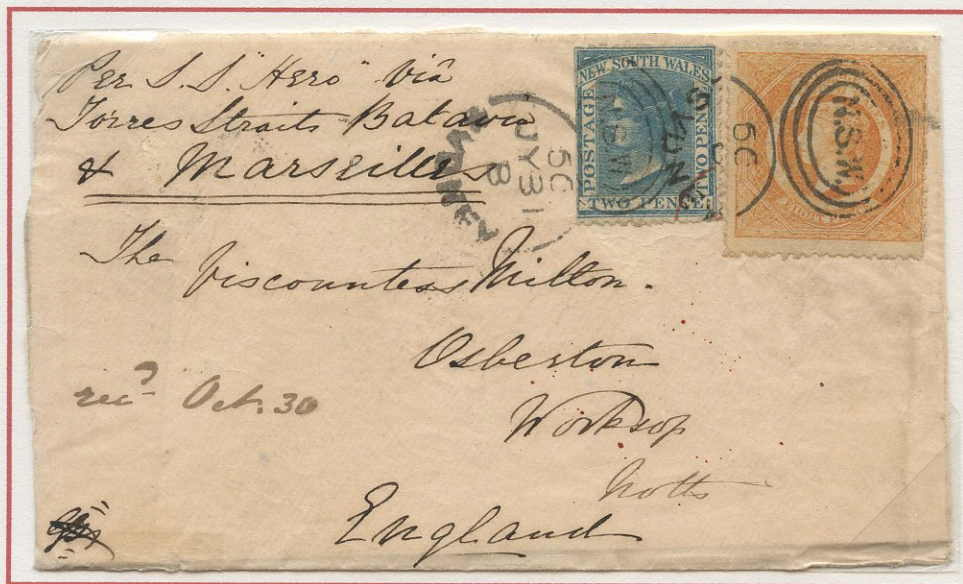 Per S.S. "Hero" via
Torres Straits Batavia
& Marseilles
NEW SOUTH WALES
POSTAGE
TWO PENCE
TWO PENCE
N.S.W.
N.S.W.
SYDNEY
SYDNEY
JY 31
The
Viscountess Milton.
Osberton
Worksop
Notts
England
recd Oct. 30